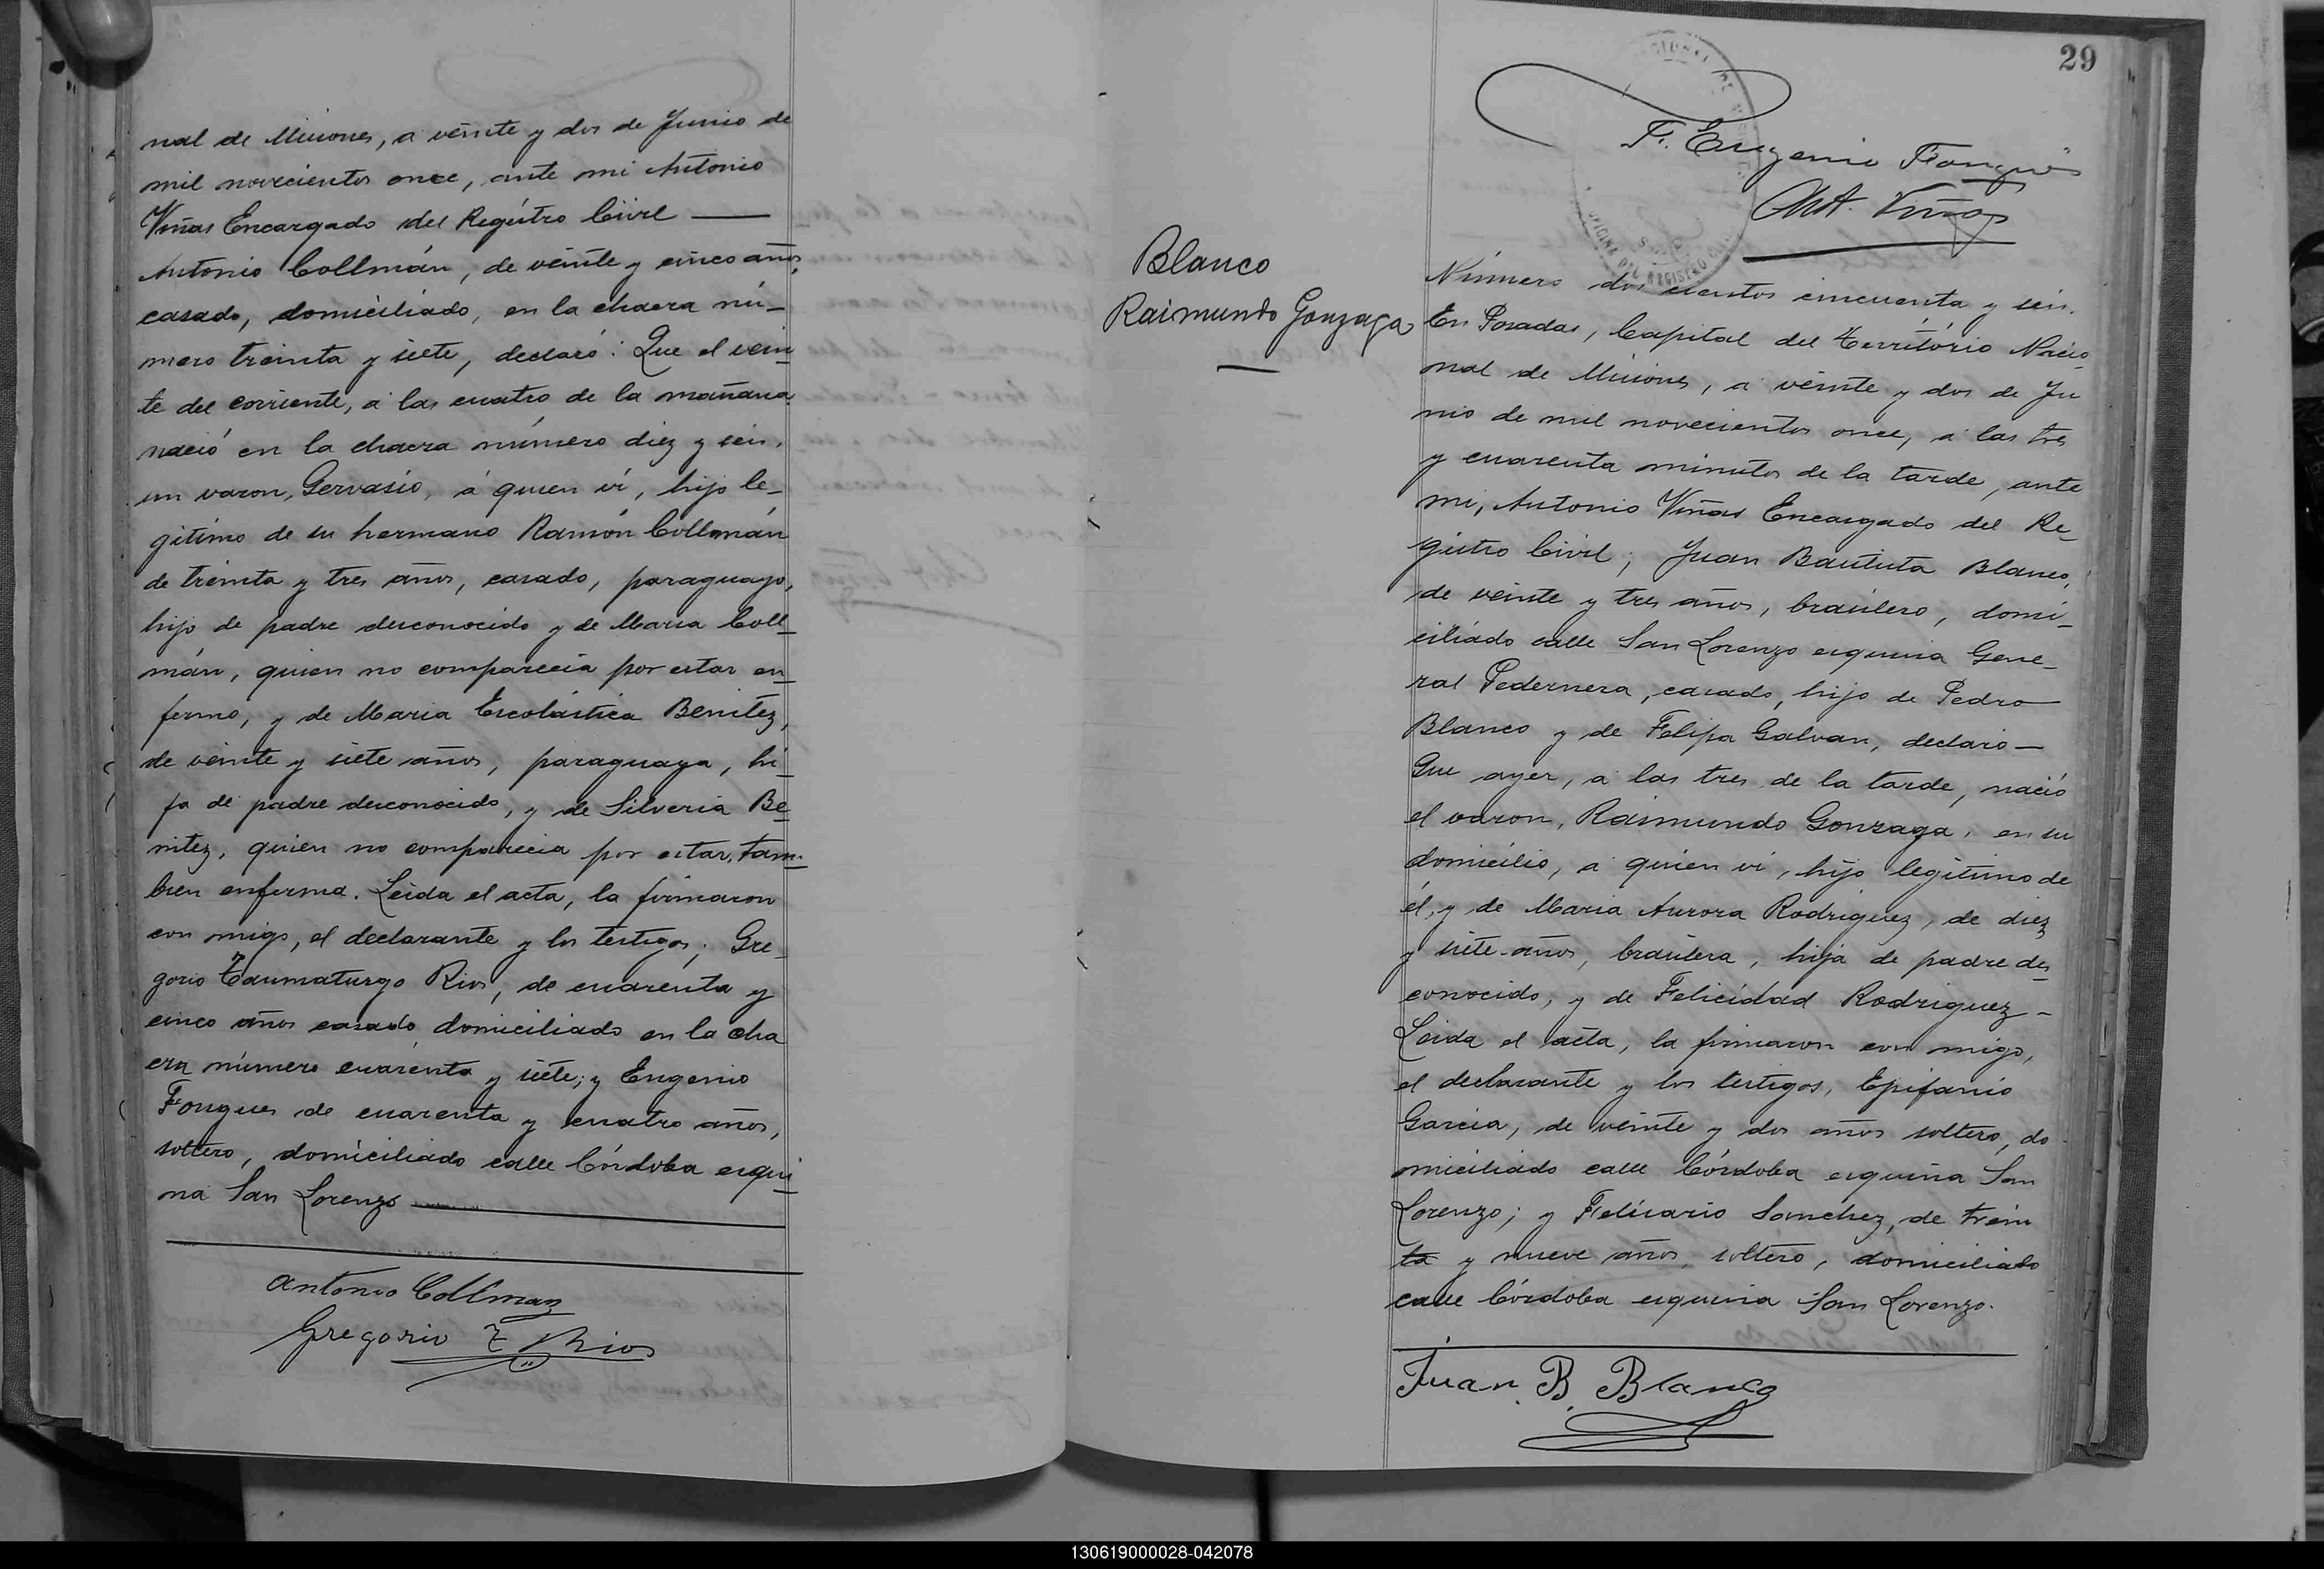 nal de Misiones, a veinte y dos de Junio de
mil novecientos once, ante mi Antonio
Viñas Encargado del Registro Civil
Antonio Collmán, de veinte y cinco años,
casado, domiciliado, en la chacra nú-
mero treinta y siete, declaró: Que el vein
te del corriente, a las cuatro de la mañana
nació en la chacra número diez y seis,
un varon, Gervasio, á quien ví, hijo le-
gitimo de su hermano Ramón Collmán
de treinta y tres años, casado, paraguayo,
hijo de padre desconocido y de Maria Coll
mán, quien no comparecia por estar en
fermo, y de Maria Escolástica Benitez,
de veinte y siete años, paraguaya, hi
ja de padre desconocido, y de Silveria Be
nitez, quien no comparecia por estar, tam-
bien enferma. Leida el acta, la firmaron
con migo, el declarante y los testigos; Gre
gorio Taumaturgo Rios, de cuarenta y
cinco años casado domiciliado en la cha
cra número cuarenta y siete; y Eugenio
Fongues de cuarenta y cuatro años,
soltero, domiciliado calle Córdoba esqui
na San Lorenzo
Antonio Collman
Gregorio T Rios
29
F. Eugenio Fongués
Ant. Viñas
OFICINA DEL REGISTRO CIVIL
Blanco
Raimundo Gonzaga
Número dos cientos cincuenta y seis.
En Posadas, Capital del Território Nacio
nal de Misiones, a veinte y dos de Ju
nio de mil novecientos once, a las tres
y cuarenta minutos de la tarde, ante
mi, Antonio Viñas Encargado del Re-
gistro Civil; Juan Bautista Blanco,
de veinte y tres años, brasilero, domi-
ciliado calle San Lorenzo esquina Gene-
ral Pedernera, casado, hijo de Pedro
Blanco y de Felipa Galvan, declaró—
Que ayer, a las tres de la tarde, nació
el varon, Raimundo Gonzaga, en su
domicilio, a quien ví, hijo legitimo de
él, y de Maria Aurora Rodriguez, de diez
y siete años, brasilera, hija de padre des
conocido, y de Felicidad Rodriguez -
Leida el acta, la firmaron con migo,
el declarante y los testigos, Epifanio
Garcia, de veinte y dos años soltero, do
miciliado calle Córdoba esquina San
Lorenzo; y Felisario Sanchez, de trein
ta y nueve años, soltero, domiciliado
calle Córdoba esquina San Lorenzo.
Juan B. Blanco
130619000028-042078